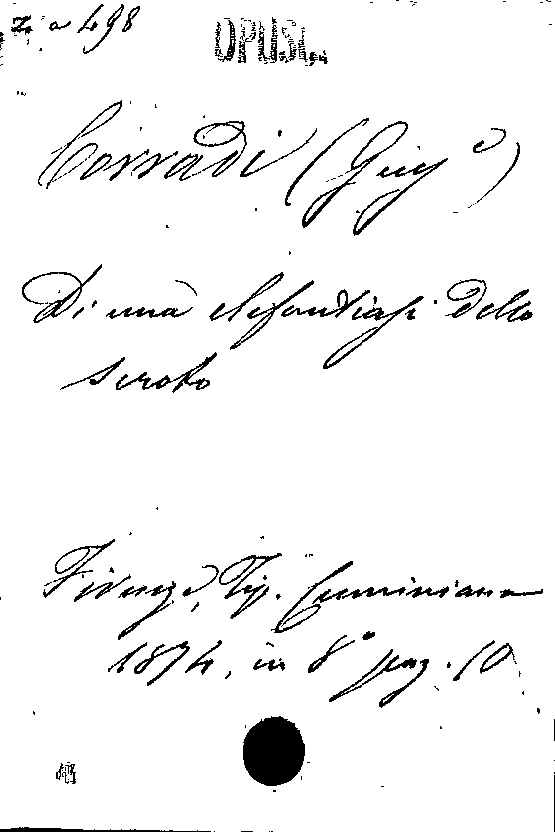 Z. a 498
OPUSC.
Corradi (Giuse)
Di una elefantiasi dello
scroto
Firenze, Tip. Cenniniana
1874, in 8° pag. 10